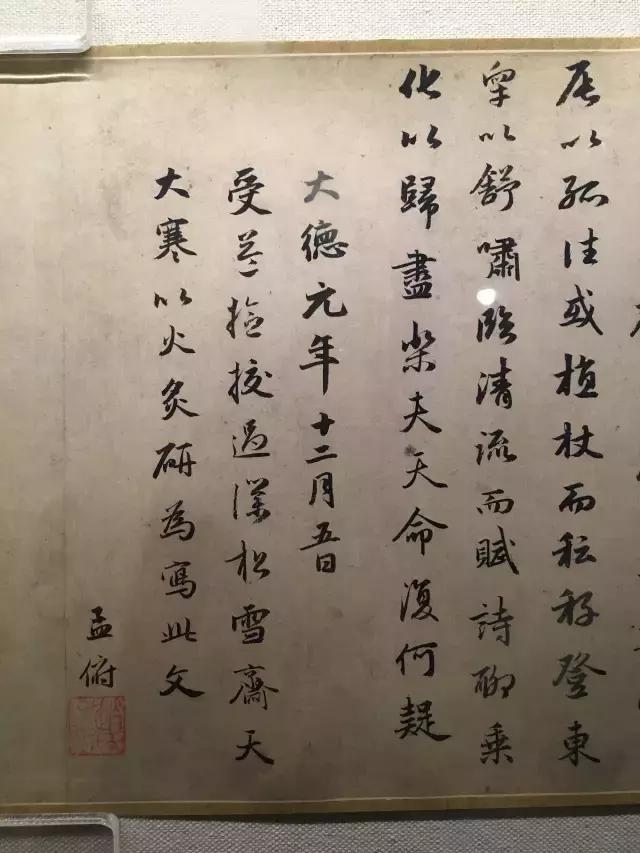 辰以孤往或植杖而耘耔登東
皋以舒嘯臨清流而賦詩聊乘
化以歸盡樂夫天命復何疑
大德元年十二月五日
受益撿挍過僕松雪齋天
大寒以火炙研為寫此文
孟頫